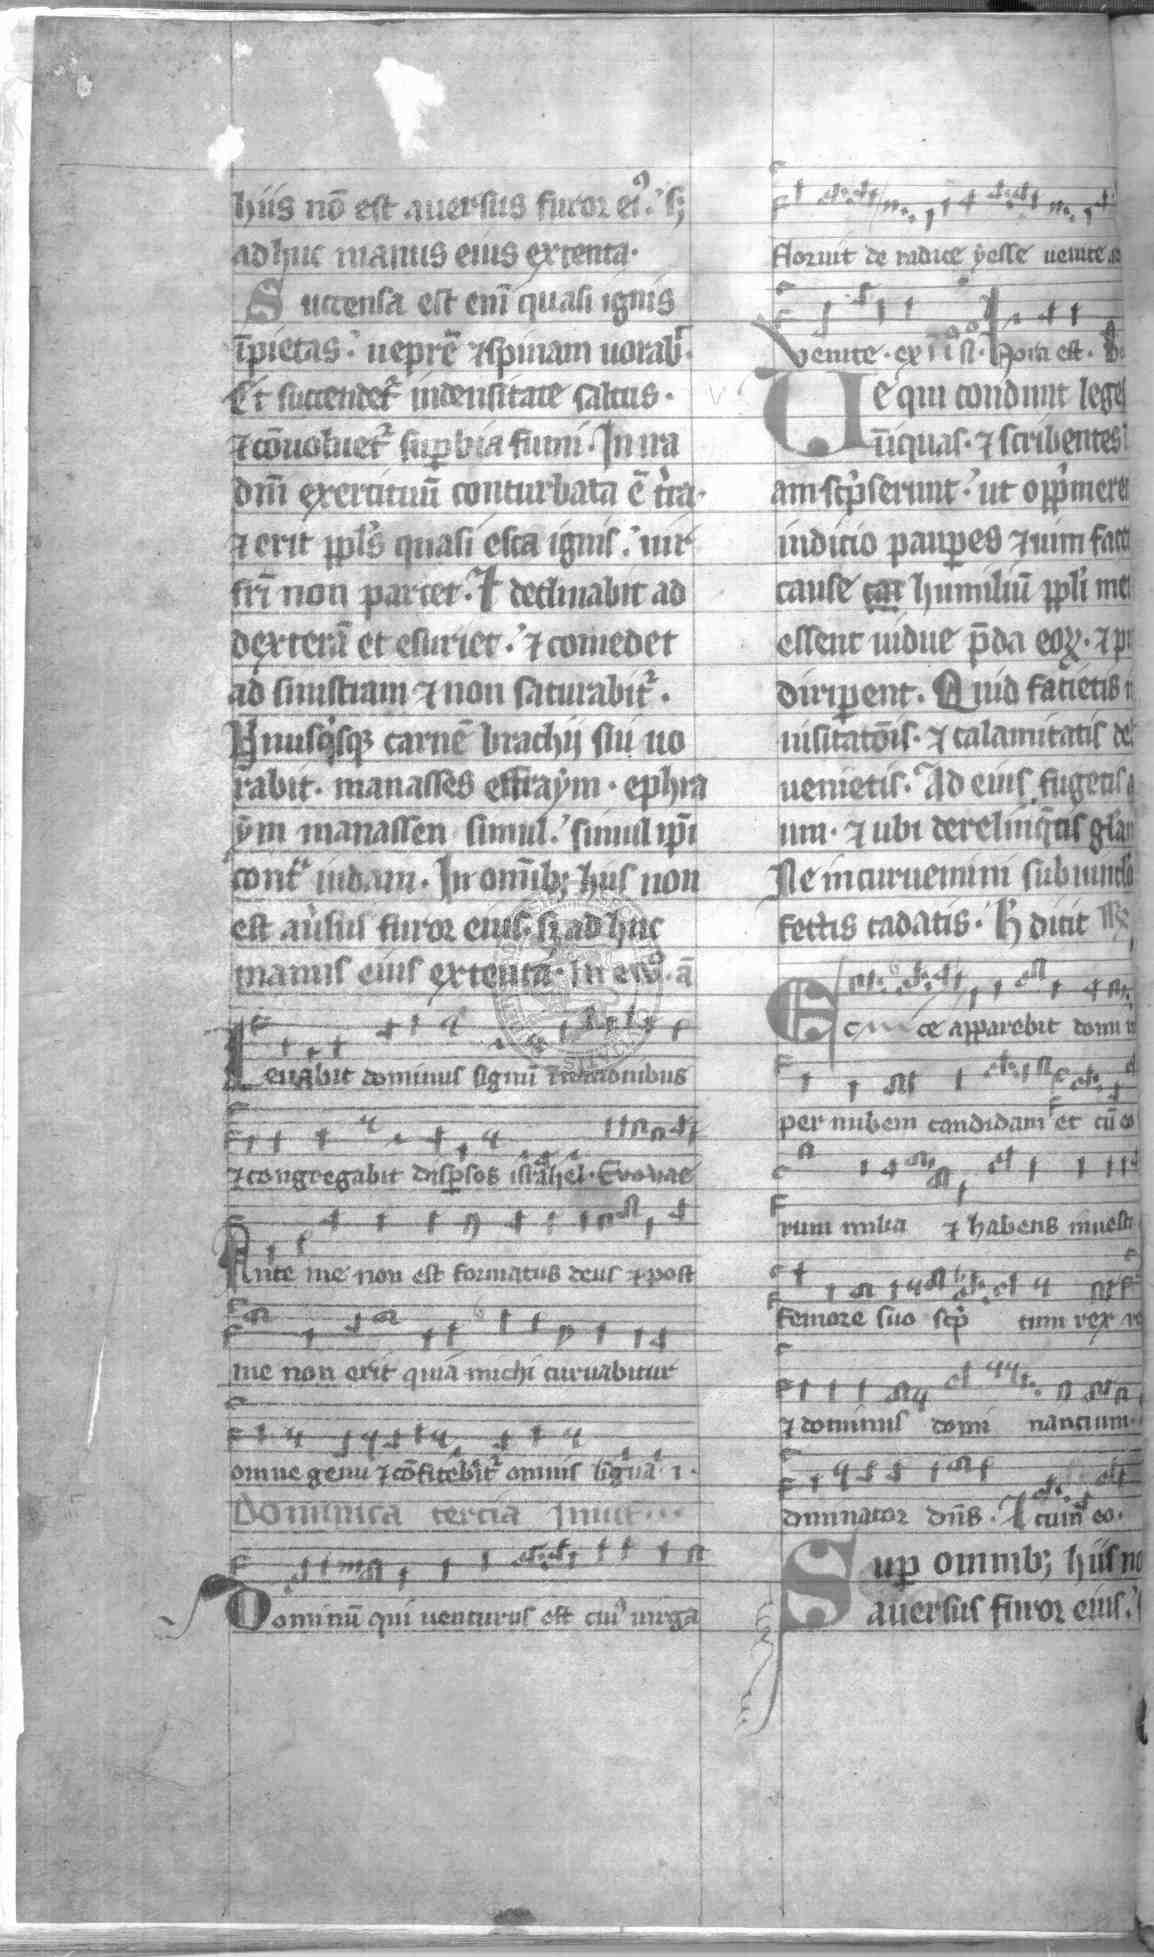 hiis nō est auersus furor ei⁹. s;
adhuc manus eius extenta.
Succensa est enī quasi ignis
īpietas. ueprē ⁊ spinam uorab̄.
Et succendet᷑ in densitate saltus.
⁊ cōuoluet᷑ supbia fumi. In ira
dn̄i exercituū conturbata ē t̄ra.
⁊ erit ppl̓s quasi esca ignis. uir
fr̄i non parcet. ⁊ declinabit ad
dexterā et esuriet. ⁊ comedet
ad sinistram ⁊ non saturabit᷑.
Vnusq̓sqꝫ carnē brachij sui uo
rabit. manasses effraẏm. ephra
ẏm manassen simul. simul ip̄i
cont᷑ iudam. In om̄ib; hiis non
est au̓sus furor eius. sꝫ ad huc
manus eius extenta. In eu̅. a᷑
Leuabit dominus signū in nationibus
⁊ congregabit disp̱sos israhel. Euouae
Ante me non est formatus deus ⁊ post
me non erit quia michi curuabitur
omne genu ⁊ cōfitebit᷑ omnis lingua. i.
Dominica tercia Inuit...
Dominū qui uenturus est cui⁹ uirga
floruit de radice ẏesse uenite
Venite. ex Hora est.
Ue qui condunt leges
īiquas. ⁊ scribentes
am scp̓serunt. ut opp̓mere
iudicio paup̱es ⁊ uim face
cause humiliū ppl̓i mei
essent uidue p̄da eoꝝ. ⁊
dirip̱ent. Quid facietis
uisitatōis. ⁊ calamitatis de
uenietis. Ad eius fugetis
um. ⁊ ubi derelinq̄tis glā
Ne incuruemini sub uinclo
fectis cadatis. H̓ dicit
Ecce apparebit domi
per nubem candidam et cū eo
rum milia ⁊ habens inuesti
femore suo scp̓tum rex re
⁊ dominus dominancium.
dminator dn̄s. ⁊ cum eo.
Sup̱ omnib; hiis no
auersus furor eius.